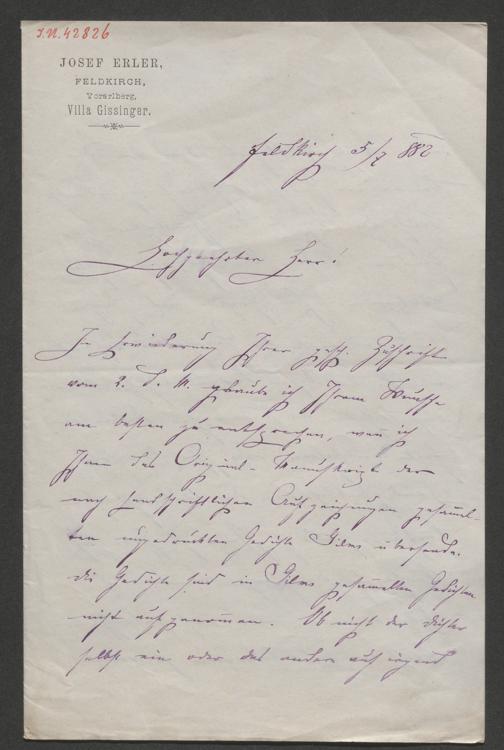 I.N. 42826
JOSEF ERLER,
FELDKIRCH,
Vorarlberg,
Villa Gissinger.
Feldkirch 5/7 882
Hochgeehrter Herr!
In Erwiederung Ihrer gesch. Zuschrift
vom 2. d. M. glaube ich Ihrem Wunsche
am besten zu entsprechen, wen ich
Ihnen das Original-Manuskript der
nach handschriftlichen Aufzeichnungen gesammel-
ten ungedruckten Gedichte Gilms übersende.
Die Gedichte sind in Gilms gesammelten Gedichten
nicht aufgenommen. Ob nicht der Dichter
selbst ein oder das andere auf irgend